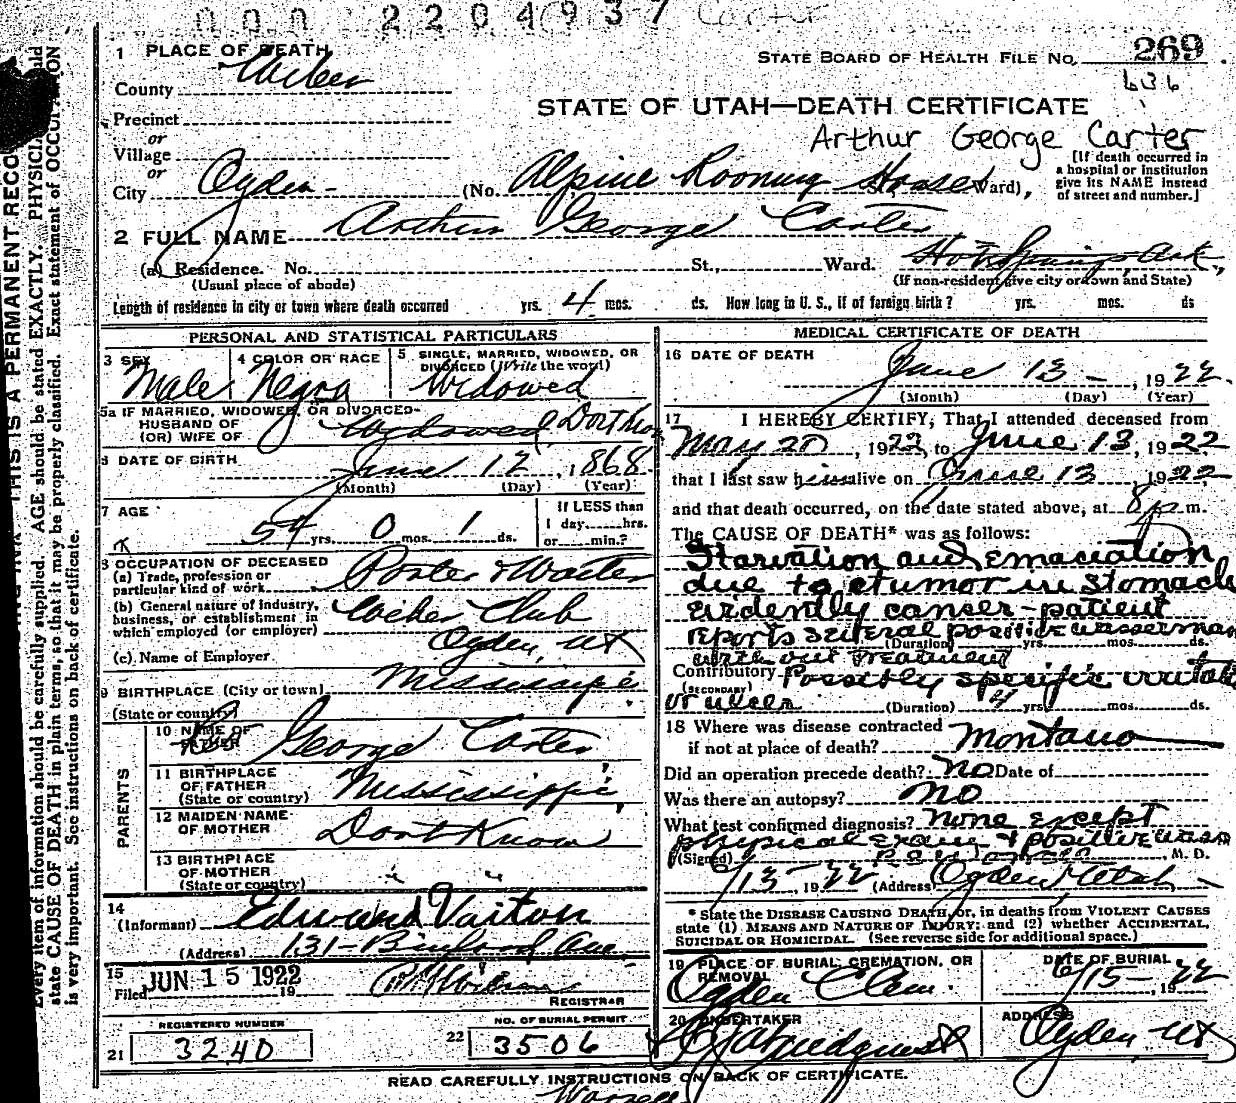 000 2204937 Carter
1 PLACE OF DEATH
STATE BOARD OF HEALTH FILE No. 269
County Weber
636
STATE OF UTAH—DEATH CERTIFICATE
Precinct
or
Arthur George Carter
Village
or
[If death occurred in
a hospital or institution
give its NAME instead
of street and number.]
City Ogden (No. Alpine Rooming House Ward),
2 FULL NAME Arthur George Carter
(a) Residence. No. St., Ward. Hot Springs, Ark.,
(Usual place of abode) (If non-resident give city or town and State)
Length of residence in city or town where death occurred yrs. 4 mos. ds. How long in U. S., if of foreign birth? yrs. mos. ds
PERSONAL AND STATISTICAL PARTICULARS
3 SEX Male
4 COLOR OR RACE Negro
5 SINGLE, MARRIED, WIDOWED, OR
DIVORCED (Write the word) Widowed
5a IF MARRIED, WIDOWED, OR DIVORCED
HUSBAND OF
(OR) WIFE OF Widowed Dont Know
6 DATE OF BIRTH June 12, 1868
(Month) (Day) (Year)
7 AGE 54 yrs. 0 mos. 1 ds.
If LESS than
1 day hrs.
or min.?
8 OCCUPATION OF DECEASED
(a) Trade, profession or
particular kind of work Porter & Waiter
(b) General nature of industry,
business, or establishment in
which employed (or employer) Weber Club
Ogden, Ut
(c) Name of Employer
9 BIRTHPLACE (City or town) Mississippi
(State or country)
PARENTS
10 NAME OF
FATHER George Carter
11 BIRTHPLACE
OF FATHER
(State or country) Mississippi
12 MAIDEN NAME
OF MOTHER Dont Know
13 BIRTHPLACE
OF MOTHER
(State or country) " "
14
(Informant) Edward Vaiton
(Address) 131 - Binford Ave
15
Filed JUN 15 1922 19
REGISTRAR
REGISTERED NUMBER
21 3240
NO. OF BURIAL PERMIT
22 3506
MEDICAL CERTIFICATE OF DEATH
16 DATE OF DEATH
June 13 - , 1922.
(Month) (Day) (Year)
17 I HEREBY CERTIFY, That I attended deceased from
May 20, 1922, to June 13, 1922
that I last saw him alive on June 13 1922
and that death occurred, on the date stated above, at 8 p. m.
The CAUSE OF DEATH* was as follows:
Starvation and emaciation
due to a tumor in stomach
evidently cancer - patient
reports several positive wasserman
(Duration) yrs. mos. ds.
without treatment
Contributory Possibly specific irritation
(SECONDARY)
or ulcer (Duration) 4 yrs. mos. ds.
18 Where was disease contracted
if not at place of death? Montana
Did an operation precede death? No Date of
Was there an autopsy? no
What test confirmed diagnosis? None except
physical exam & positive wass
(Signed) , M. D.
6/13, 1922 (Address) Ogden Utah
* State the DISEASE CAUSING DEATH, or, in deaths from VIOLENT CAUSES
state (1) MEANS AND NATURE OF INJURY; and (2) whether ACCIDENTAL,
SUICIDAL OR HOMICIDAL. (See reverse side for additional space.)
19 PLACE OF BURIAL, CREMATION, OR
REMOVAL
Ogden Cem.
DATE OF BURIAL
6/15, 1922
20 UNDERTAKER
ADDRESS
Ogden, Ut
READ CAREFULLY INSTRUCTIONS ON BACK OF CERTIFICATE.
THIS IS A PERMANENT RECO
Every item of information should be carefully supplied. AGE should be stated EXACTLY. PHYSICIA
state CAUSE OF DEATH in plain terms, so that it may be properly classified. Exact statement of OCCUPATION
is very important. See instructions on back of certificate.